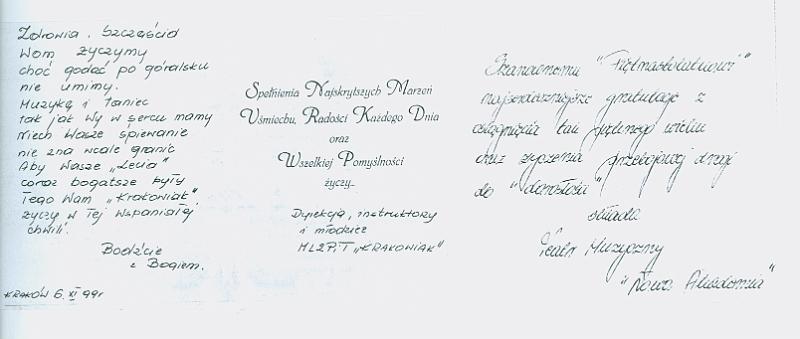 Zdrowia, Szczęścia
Wam życzymy
choć godać po góralsku
nie umimy.
Muzykę i taniec
tak jak Wy w sercu mamy
Niech Wasze śpiewanie
nie zna wcale granic
Aby Wasze „Lecia"
coraz bogatsze były
Tego Wam „Krakowiak"
życzy w Tej Wspaniałej
chwili.
Bodźcie
z Bogiem.
KRAKÓW 6. XI 99r
Spełnienia Najskrytszych Marzeń
Uśmiechu, Radości Każdego Dnia
oraz
Wszelkiej Pomyślności
życzy...
Dyrekcja, instruktorzy
i młodzież
MLZPiT „KRAKOWIAK"
Szanownemu "Piętnastolatkowi"
najserdeczniejsze gratulacje z
osiągnięcia tak pięknego wieku
oraz życzenia przebojowej drogi
do "dorosłości"
składa
Teatr Muzyczny
"Nowa Akademia"